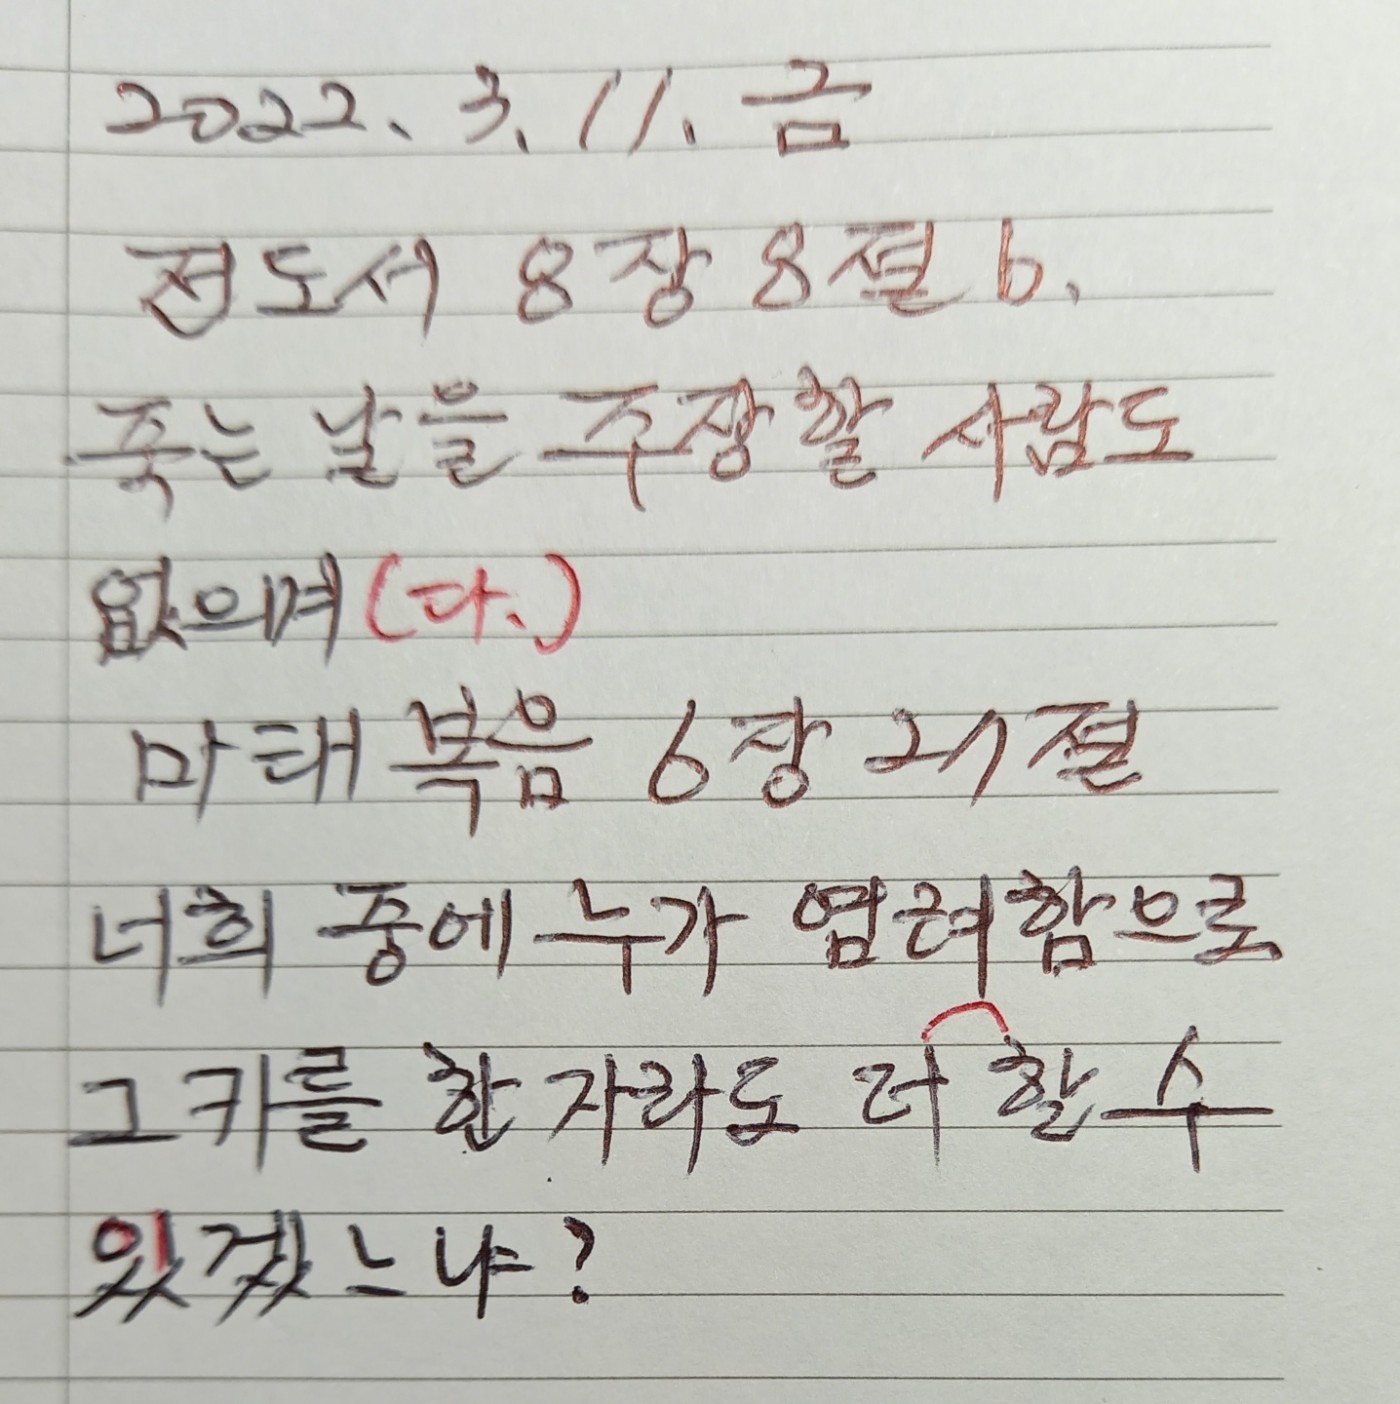 2022. 3. 11. 금
전도서 8장 8절 b.
죽는 날을 주장할 사람도
없으며(다.)
마태복음 6장 27절
너희 중에 누가 염려함으로
그 키를 한 자라도 더 할 수
있겠느냐?